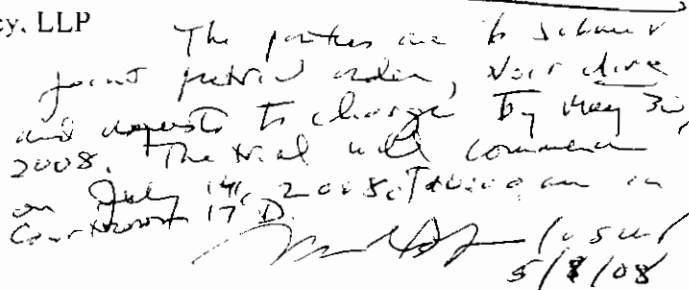 cy, LLP
The parties are to submit
joint pretrial order, voir dire
and requests to charge by May 30,
2008. The trial will commence
on July 14, 2008, at 10:00 am in
Courtroom 17D.
USDJ
5/8/08